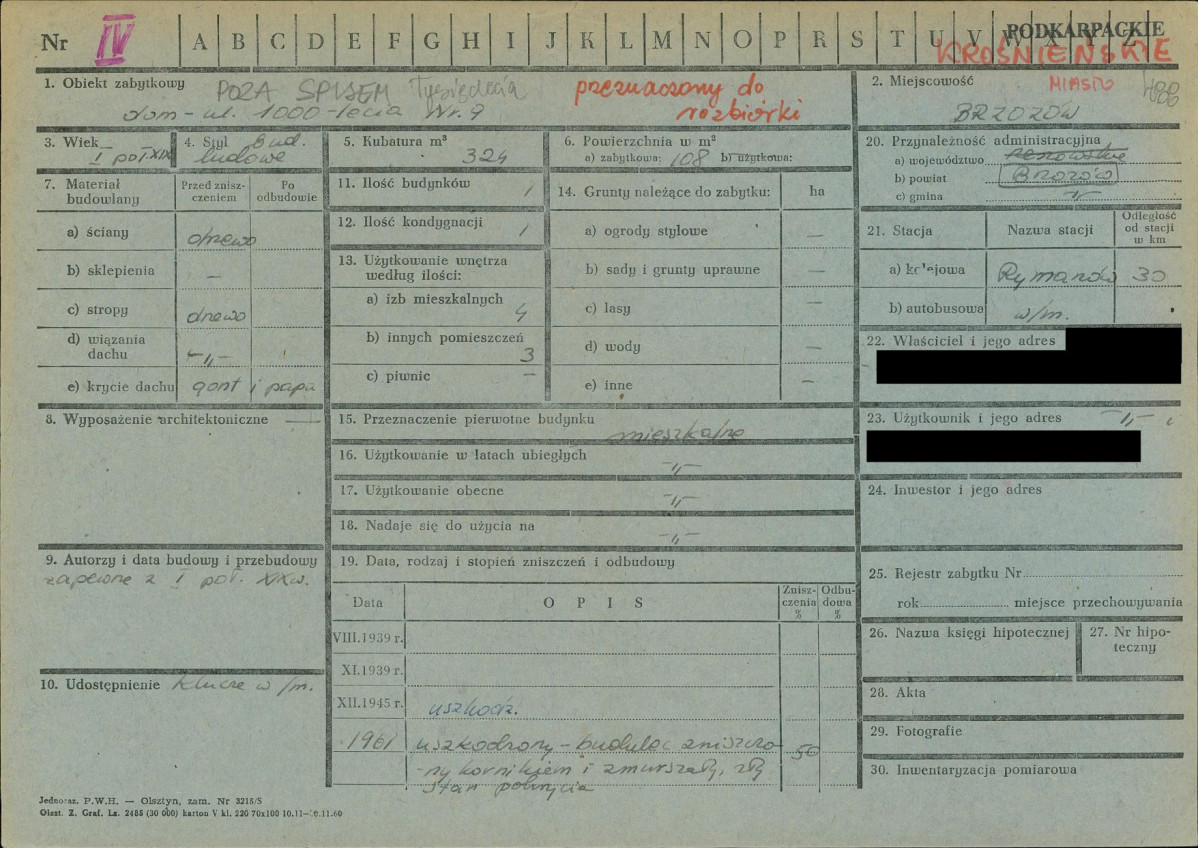 Nr IV A B C D E F G H I J K L M N O P R S T U V W X Y Z
PODKARPACKIE
KROŚNIEŃSKIE
1. Obiekt zabytkowy POZA SPISEM Tysiąclecia
dom - ul. 1000-lecia Nr. 9
przeznaczony do
rozbiórki
2. Miejscowość MIASTO 488
BRZOZÓW
3. Wiek
I poł. XIX
4. Styl bud.
ludowe
5. Kubatura m³
324
6. Powierzchnia w m²
a) zabytkowa: 108 b) użytkowa:
7. Materiał budowlany
Przed zniszczeniem
Po odbudowie
a) ściany drewo
b) sklepienia —
c) stropy drewo
d) wiązania dachu -„-
e) krycie dachu gont i papa
11. Ilość budynków 1
12. Ilość kondygnacji 1
13. Użytkowanie wnętrza
według ilości:
a) izb mieszkalnych 4
b) innych pomieszczeń 3
c) piwnic —
14. Grunty należące do zabytku: ha
a) ogrody stylowe —
b) sady i grunty uprawne —
c) lasy —
d) wody —
e) inne —
20. Przynależność administracyjna
a) województwo rzeszowskie
b) powiat Brzozów
c) gmina -„-
21. Stacja
Nazwa stacji
Odległość od stacji w km
a) kolejowa Rymanów 30
b) autobusowa w/m.
22. Właściciel i jego adres
23. Użytkownik i jego adres -„-
24. Inwestor i jego adres
25. Rejestr zabytku Nr
rok miejsce przechowywania
26. Nazwa księgi hipotecznej
27. Nr hipoteczny
28. Akta
29. Fotografie
30. Inwentaryzacja pomiarowa
8. Wyposażenie architektoniczne —
15. Przeznaczenie pierwotne budynku
mieszkalne
16. Użytkowanie w latach ubiegłych -„-
17. Użytkowanie obecne -„-
18. Nadaje się do użycia na -„-
9. Autorzy i data budowy i przebudowy
zapewne z I poł. XIX w.
10. Udostępnienie klucze w/m.
19. Data, rodzaj i stopień zniszczeń i odbudowy
Data
O P I S
Zniszczenia %
Odbudowa %
VIII.1939 r.
XI.1939 r.
XII.1945 r. uszkodz.
1961 uszkodzony - budulec zniszczo- 50
-ny kornikiem i zmurszały, zły
stan pokrycia
Jednoraz. P.W.H. — Olsztyn, zam. Nr 3218/S
Olszt. Z. Graf. Lz. 2485 (30 000) karton V kl. 220 70x100 10.11—10.11.60